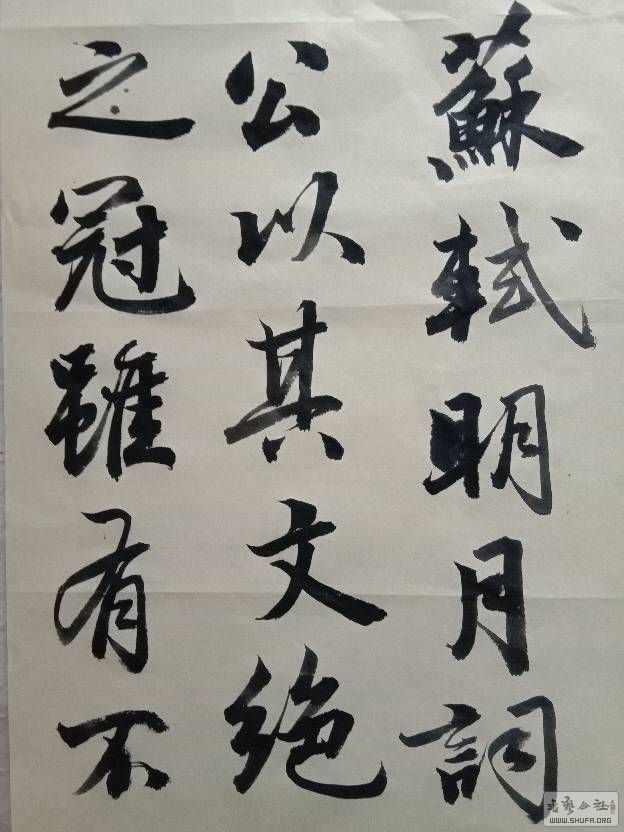 蘇軾明月詞
公以其文绝
之冠雖有不
WWW.SHUFA.ORG